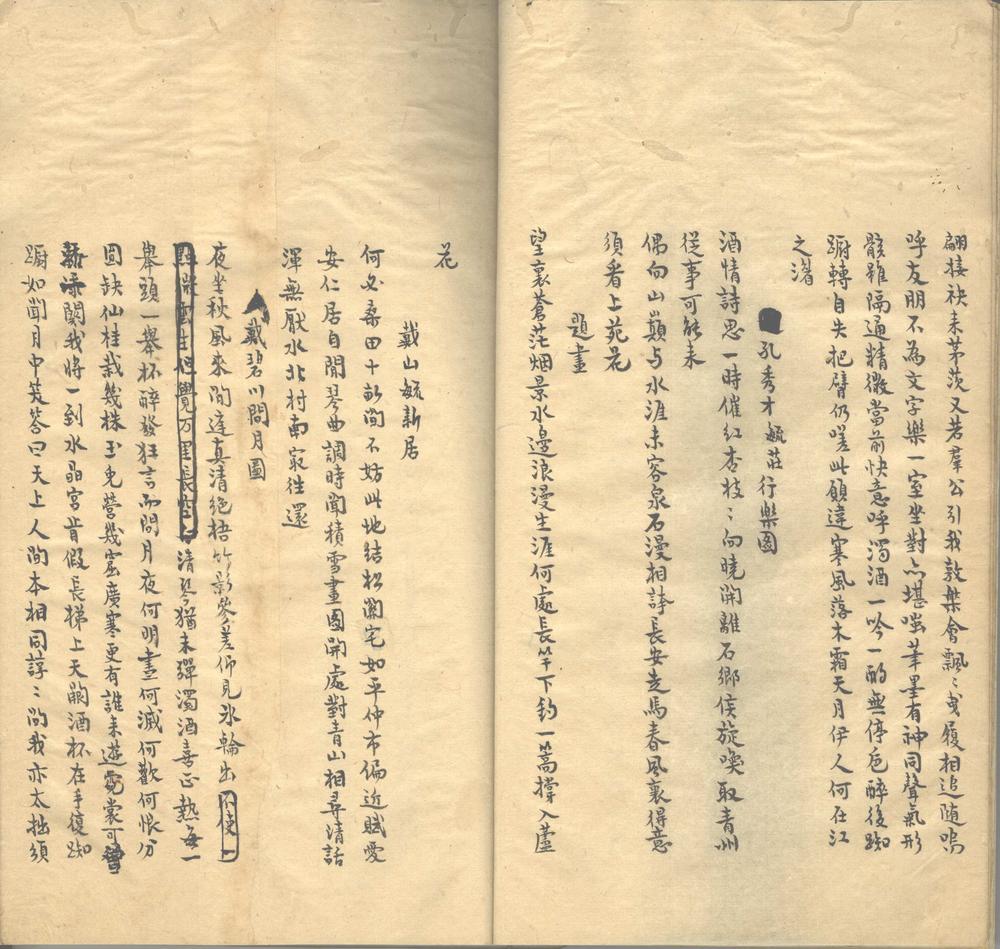 翩接袂来茅茨又若群公引我敦槃會飄〻曳履相追随嗚
呼友朋不為文字樂一室坐對亦堪嗤筆墨有神同聲氣形
骸雖隔通精微當前快意呼濁酒一吟一酌無停巵醉後踟
蹰轉自失把臂仍嗟此願違寒風落木霜天月伊人何在江
之濱
孔秀才毓莊行樂圖
酒情詩思一時催紅杏枝〻向曉開離石鄉侯旋喚取青州
從事可能来
偶向山巔与水涯未容泉石漫相誇長安走馬春風裏得意
須看上苑花
題畫
望裏蒼茫烟景水邊浪漫生涯何處長竿下釣一篙撐入蘆
花
戴山毓新居
何必桑田十畝間不妨此地結松關宅如平仲市偏近賦愛
安仁居自閒琴曲調時聞積雪畫圖開處對青山相尋清話
渾無厭水北村南家往還
戴碧川問月圖
夜坐秋風來閒達真清絕梧竹影參差仰見氷輪出不使一
點微雲生但覺万里長空上清琴猶未彈濁酒喜正熱每一
舉頭一舉杯醉發狂言而問月夜何明晝何滅何歡何恨分
圓缺仙桂栽幾株玉兔營幾窟廣寒更有誰来遊霓裳可曾
添闋我將一到水晶宮肯假長梯上天闕酒杯在手復踟
蹰如聞月中笑答曰天上人間本相同諄〻問我亦太拙須